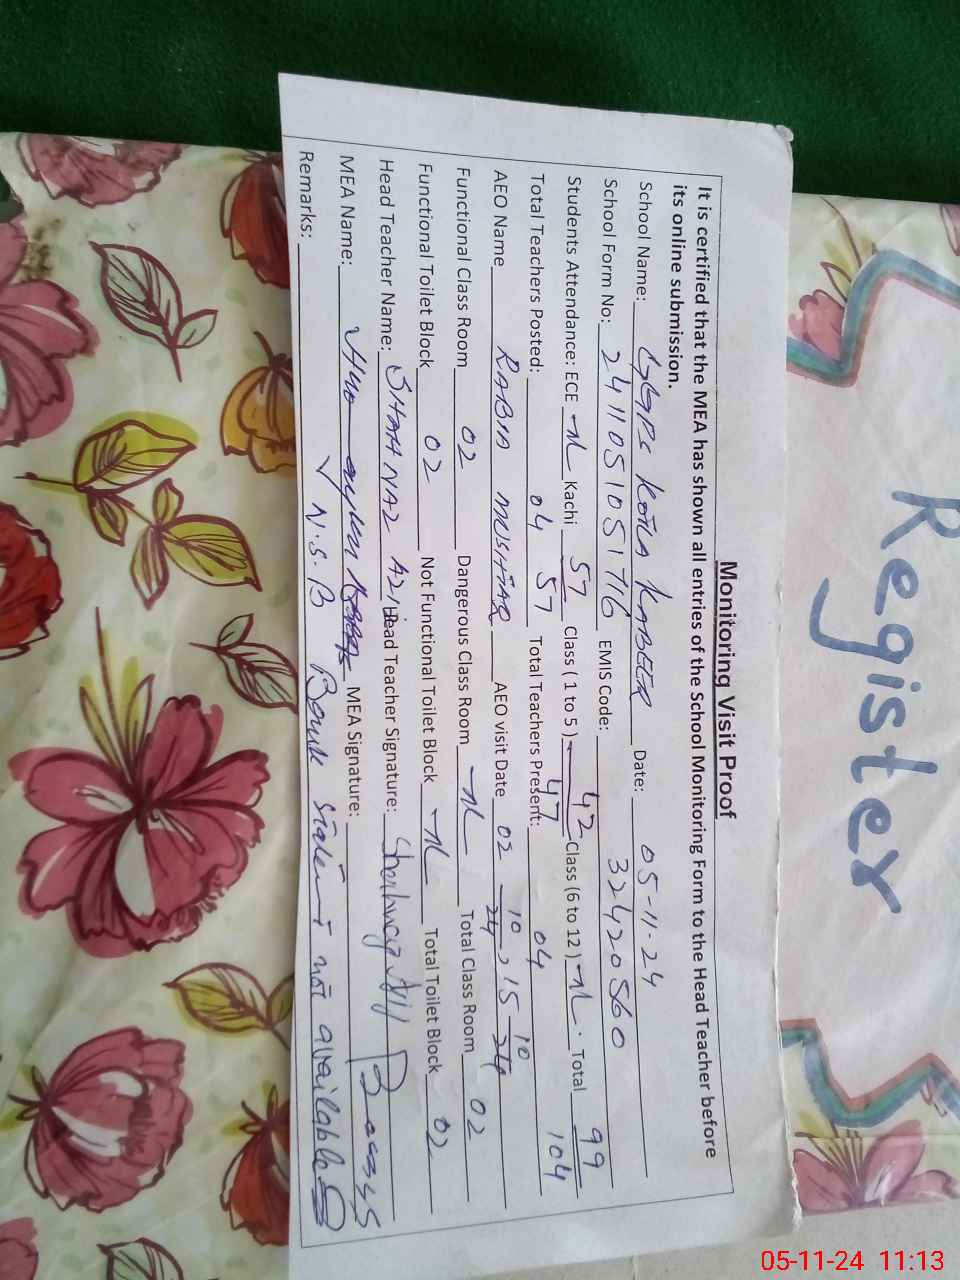 Register
Monitoring Visit Proof
It is certified that the MEA has shown all entries of the School Monitoring Form to the Head Teacher before
its online submission.
School Name: GGPS KOTLA KABEER Date: 05-11-24
School Form No: 241105105176 EMIS Code: 32420560
Students Attendance: ECE Nil Kachi 57 Class ( 1 to 5 ) 42 Class (6 to 12 ) Nil Total 99
57 47 104
Total Teachers Posted: 04 Total Teachers Present: 04
AEO Name RABIA MUSHTAQ AEO visit Date 02 10 24, 15 10 24
Functional Class Room 02 Dangerous Class Room Nil Total Class Room 02
Functional Toilet Block 02 Not Functional Toilet Block Nil Total Toilet Block 02
Head Teacher Name: SHAHNAZ Head Teacher Signature:
MEA Name: MEA Signature:
Remarks: N.S.B Bank statement not available
05-11-24 11:13